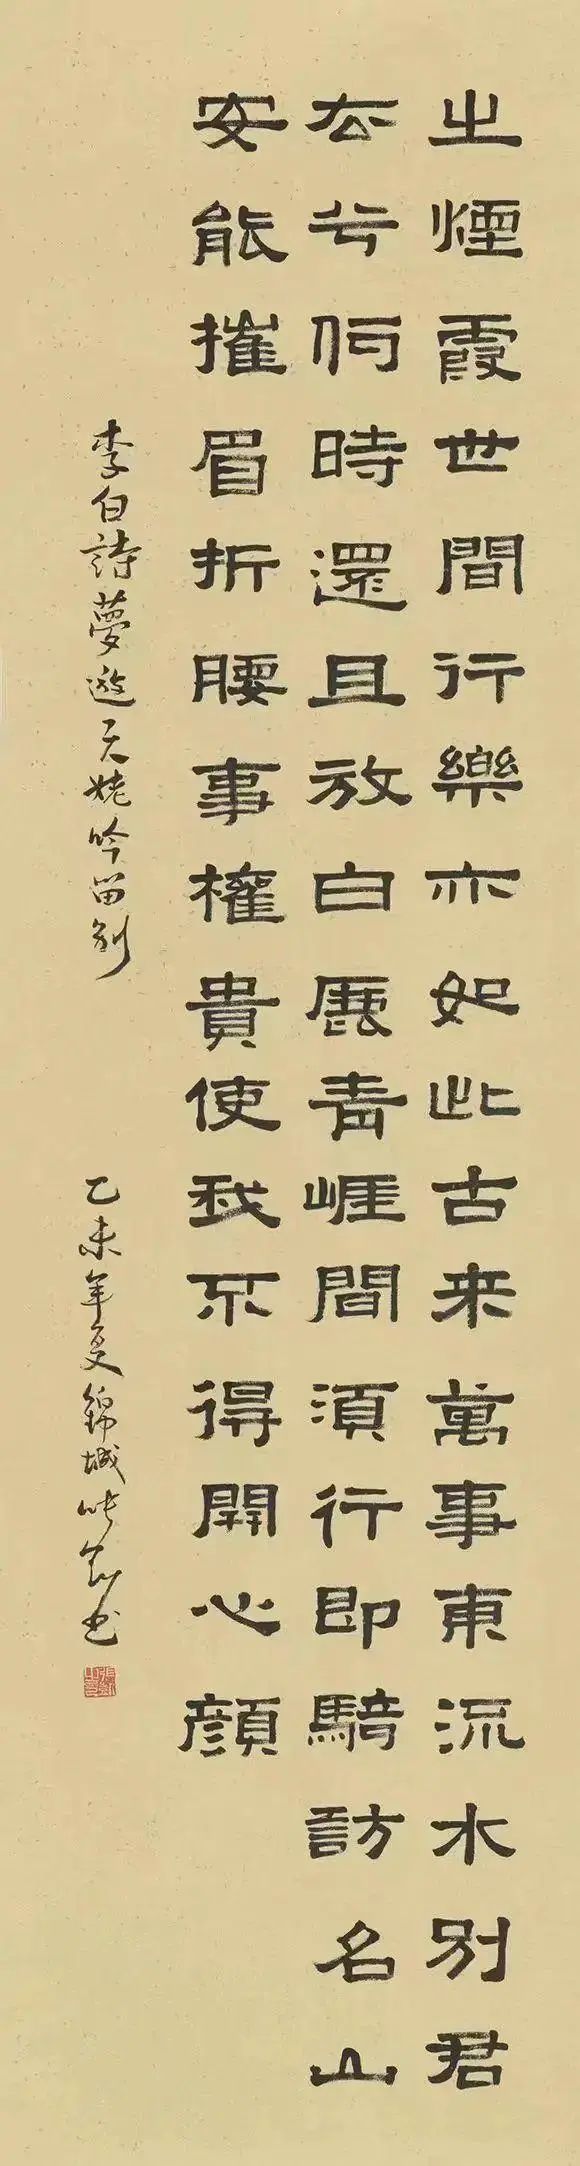 之煙霞世間行樂亦如此古来萬事東流水別君
去兮何時還且放白鹿青崕間須行即騎訪名山
安能摧眉折腰事權貴使我不得開心顔
李白詩夢遊天姥吟留別
乙未年夏錦城書